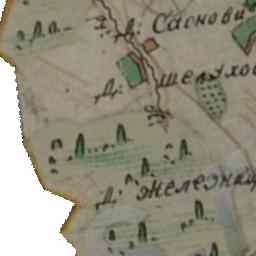 д: Саснови
Д: шелухо
Д: железниц